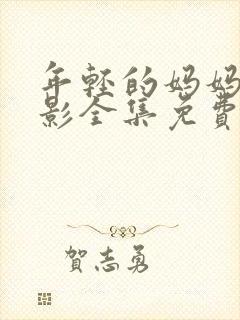 年轻的妈妈
影全集免費
賀志勇